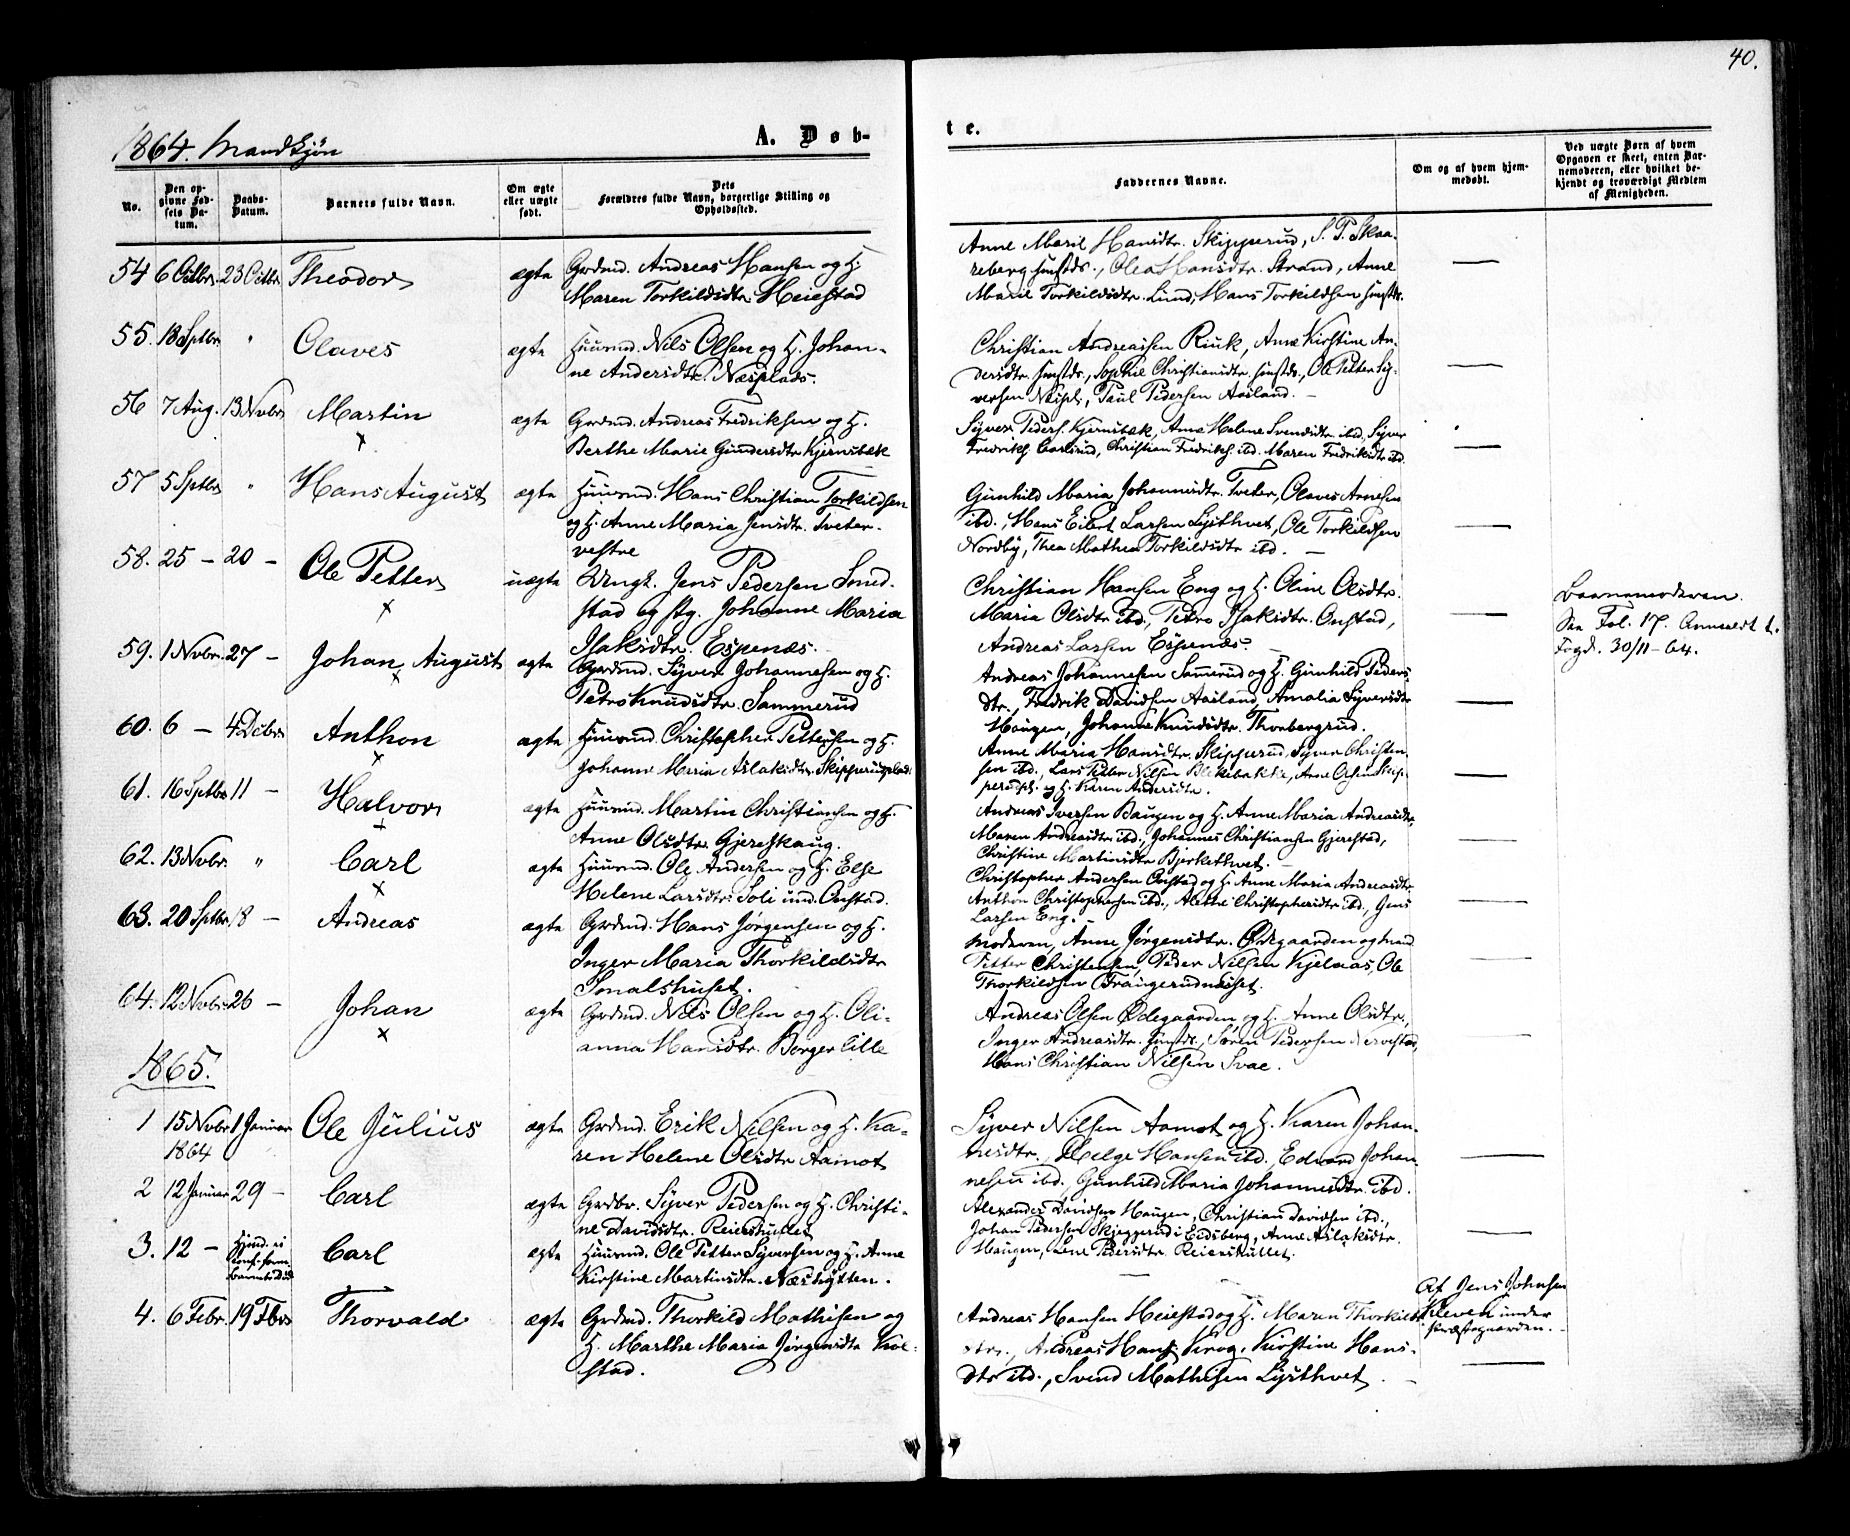 40.
1864. Mandkjøn
A. Døb-
te.
No.
Den opgivne Fødsels Datum.
Daabs-Datum.
Barnets fulde Navn.
Om ægte eller uægte født.
Dets Forældres fulde Navn, borgerlige Stilling og Opholdssted.
Faddernes Navne.
Om og af hvem hjemmedøbt.
Ved uægte Børn af hvem Opgaven er skeet, enten Barnemoderen, eller hvilket bekjendt og troværdigt Medlem af Menigheden.
54 6 Octbr. 23 Octbr. Theodor ægte Grdmd. Andreas Hansen og H.
Maren Torkildsdtr. Heiestad
Anne Marie Hansdtr. Skipperud, S. P. Skaa-
reberg Huustds., Olea Hansdtr. Strand, Anne
Marie Torkildsdtr. Lund, Hans Torkildsen Huustds.
55. 18 Sptbr. " Olaves ægte Huusmd. Nils Olsen og H. Johan-
ne Andersdtr. Næsplads.
Christian Andreassen Riuk, Anne Kirstine An-
dersdtr. Huustds., Sophie Christiansdtr. Huustds., Ole Petter Sy-
versen Næspl., Paul Pedersen Aasland. -
56 7 Aug. 13 Nvbr. Martin ægte Grdmd. Andreas Fredriksen og H.
x
Berthe Marie Gundersdtr. Kjernsbæk
Syver Peders. Kjernsbæk, Anne Helene Svendsdtr. ibd., Syver
Fredriks. Carlsrud, Christian Fredriks. ibd. Maren Fredriksdtr. ibd.
57 5 Sptbr. " Hans August ægte Huusmd. Hans Christian Torkildsen
og H. Anne Maria Jensdtr. Tveter-
vestre
Gunhild Maria Johannesdtr. Tveter, Olaves Arnesen
ibd., Hans Eilert Larsen Lysthvet, Ole Torkildsen
Nordby, Thea Mathea Torkildsdtr. ibd. -
58. 25 - 20 - Ole Petter uægte Ungk. Jens Pedersen Smed-
x
stad og Pg. Johanne Maria
Isaksdtr. Espenæs.
Christian Hansen Eng og H. Oline Olsdtr.
Maria Olsdtr. ibd., Petro Isaksdtr. Onstad,
Andreas Larsen Espenæs.
Barnemoderen.
Saa Fol. 17. Anmeldt t.
Fogd. 30/11-64.
59. 1 Nvbr. 27 - Johan August ægte Grdmd. Syver Johannesen og H.
x
Petro Knudsdtr. Sammerud
Andreas Johannesen Samerud og H. Gunhild Peders-
dtr., Fredrik Davidsen Aasland, Amalia Syversdtr.
Haugen, Johanne Knudsdtr. Thorbergrud.
60. 6 - 4 Dcbr. Anthon ægte Huusmd. Christopher Pettersen og H.
x
Johanne Maria Aslaksdtr. Skipperudplads
Anne Maria Hansdtr. Skipperud, Syver Christen-
sen ibd., Lars Petter Nilsen Blekebakke, Arne Olsen Skip-
perudpl. og H. Karen Andersdtr.
61. 16 Sptbr. 11 - Halvor ægte Huusmd. Martin Christiansen og H.
x
Anne Olsdtr. Gjereskaug.
Andreas Iversen Baugen og H. Anne Maria Andreasdtr.,
Maren Andreasdtr. ibd., Johannes Christiansen Gjerestad,
Christine Martinsdtr. Bjerkethvet. -
62. 13 Nvbr. " Carl ægte Huusmd. Ole Andersen og H. Else
x
Helene Larsdtr. Soli und. Onstad.
Christopher Andersen Onstad og H. Anne Maria Andreasdtr.
Anthon Christophersen ibd., Alethe Christophersdtr. ibd., Jens
Larsen Eng. -
63. 20 Sptbr. 18 - Andreas ægte Grdmd. Hans Jørgensen og H.
Inger Maria Thorkildsdtr
Smalshuset.
Moderen, Anne Jørgensdtr. Ødegaarden og
Petter Christensen, Peder Nilsen Kjelaas, Ole
Thorkildsen Frangerudnæiset.
64. 12 Nvbr. 26 - Johan ægte Grdmd. Nils Olsen og H. Oli-
x
anna Hansdtr. Borger lille
Andreas Olsen Ødegaarden og H. Anne Olsdtr.,
Inger Andreasdtr. Huustds., Søren Pedersen Nervestad,
Hans Christian Nilsen Svae.
1865.
1 15 Nvbr. 1864 1 Januar Ole Julius ægte Grdmd. Erik Nilsen og H. Ka-
ren Helene Olsdtr. Aamot
Syver Nilsen Aamot og H. Karen Johan-
nesdtr., Helge Hansen ibd., Edvard Johan-
nesen ibd., Gunhild Maria Johannesdtr. ibd.
2 12 Januar 29 - Carl ægte Grdbr. Syver Pedersen og H. Christi-
ne Davidsdtr. Reierskullet
Alexander Davidsen Haugen, Christian Davidsen ibd.,
Johan Pedersen Skjeggerud i Eidsberg, Anne Aslaksdtr.
Haugen, Lene Pedersdtr. Reierskullet.
3. 12 - Carl ægte Huusmd. Ole Petter Syversen og H. Anne
Kirstine Martinsdtr. Næshytten.
Af Jens Johnsen
Kleven under
Præstegaarden.
4. 6 Febr. 19 Fbr. Thorvald ægte Grdmd. Thorkild Mathisen og
H. Marthe Maria Jørgensdtr. Kol-
stad.
Andreas Hansen Heiestad og H. Maren Thorkilds-
dtr., Andreas Hans. Krog, Kirstine Hans-
dtr. ibd., Svend Mathisen Lysthvet. -